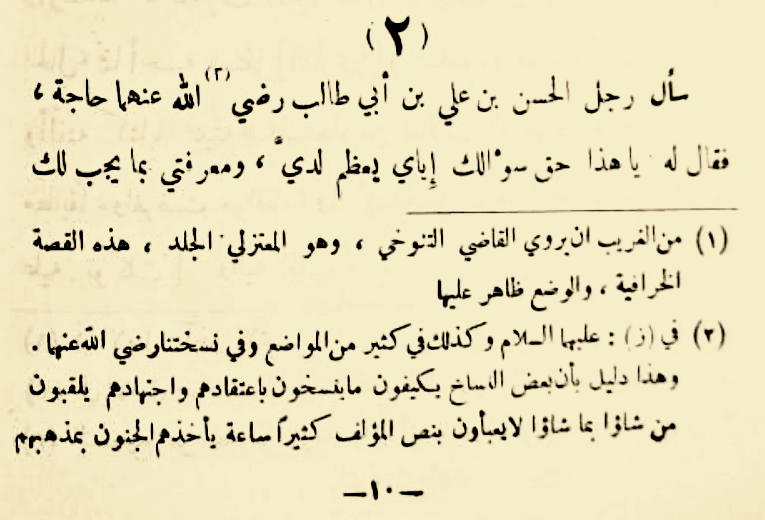 (٢)
سأل رجل الحسن بن علي بن أبي طالب رضي(٢) الله عنهما حاجة ،
فقال له يا هذا حق سؤالك إياي يعظم لديَّ ، ومعرفتي بما يجب لك
(١) من الغريب ان يروي القاضي التنوخي ، وهو المعتزلي الجلد ، هذه القصة
الخرافية ، والوضع ظاهر عليها
(٢) في (ز) : عليهما السلام وكذلك في كثير من المواضع وفي نسختنا رضي الله عنهما .
وهذا دليل بأن بعض النساخ يكيفون ما يفسخون باعتقادهم واجتهادهم يلقبون
من شاؤا بما شاؤا لا يعبأون بنص المؤلف كثيراً ساعة يأخذهم الجنون بمذهبهم
— ١٠ —